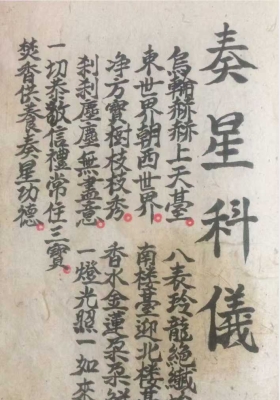 奏星科儀
烏輪赫赫上天臺。八表玲龍絕纖
東世界朝西世界。南楼臺迎北楼臺
净方寶樹枝枝秀。香水金蓮朵朵鮮
刹刹塵塵無盡意。一燈光照一如來
一切恭敬信禮常住三寶。
焚香供養奏星功德。